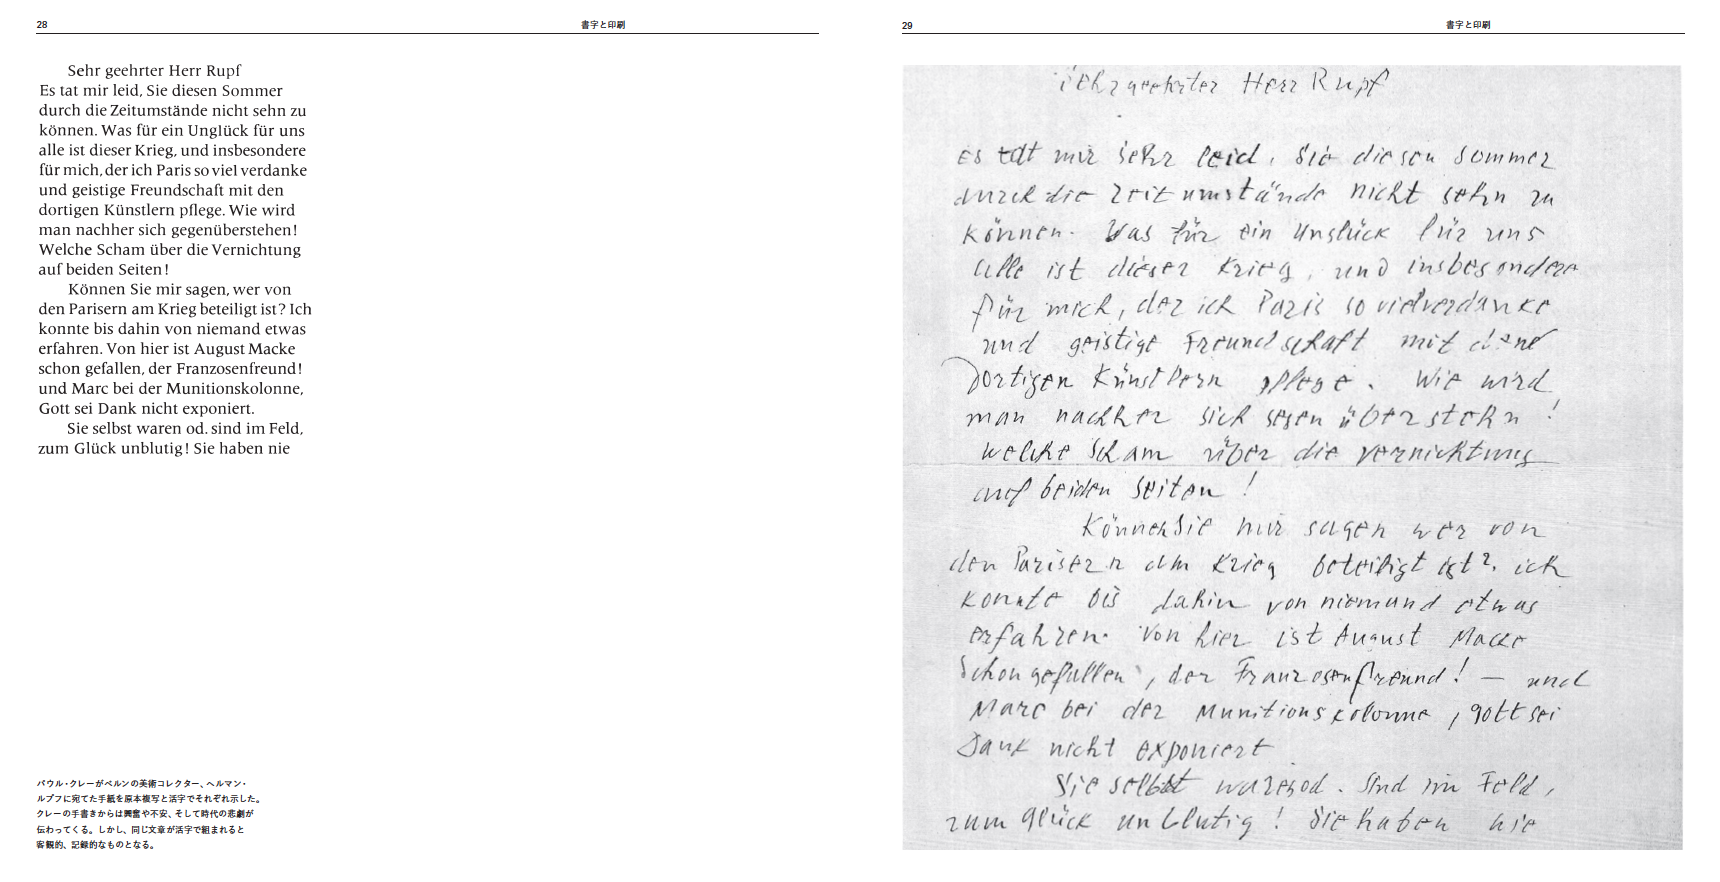 28
書字と印刷
Sehr geehrter Herr Rupf
Es tat mir leid, Sie diesen Sommer
durch die Zeitumstände nicht sehn zu
können. Was für ein Unglück für uns
alle ist dieser Krieg, und insbesondere
für mich, der ich Paris so viel verdanke
und geistige Freundschaft mit den
dortigen Künstlern pflege. Wie wird
man nachher sich gegenüberstehen!
Welche Scham über die Vernichtung
auf beiden Seiten!
Können Sie mir sagen, wer von
den Parisern am Krieg beteiligt ist? Ich
konnte bis dahin von niemand etwas
erfahren. Von hier ist August Macke
schon gefallen, der Franzosenfreund!
und Marc bei der Munitionskolonne,
Gott sei Dank nicht exponiert.
Sie selbst waren od. sind im Feld,
zum Glück unblutig! Sie haben nie
パウル・クレーがベルンの美術コレクター、ヘルマン・
ルプフに宛てた手紙を原本複写と活字でそれぞれ示した。
クレーの手書きからは興奮や不安、そして時代の悲劇が
伝わってくる。しかし、同じ文章が活字で組まれると
客観的、記録的なものとなる。
29
書字と印刷
Sehr geehrter Herr Rupf
Es tat mir sehr leid, Sie diesen Sommer
durch die Zeitumstände nicht sehn zu
können. Was für ein Unglück für uns
alle ist dieser Krieg, und insbesondere
für mich, der ich Paris so viel verdanke
und geistige Freundschaft mit
dortigen Künstlern pflege. Wie wird
man nachher sich gegenüberstehn!
Welche Scham über die Vernichtung
auf beiden Seiten!
Können Sie mir sagen wer von
den Parisern am Krieg beteiligt ist? ich
konnte bis dahin von niemand etwas
erfahren. Von hier ist August Macke
schon gefallen, der Franzosenfreund! — und
Marc bei der Munitionskolonne, gott sei
Dank nicht exponiert
Sie selbst waren od. sind im Feld,
zum Glück unblutig! Sie haben nie